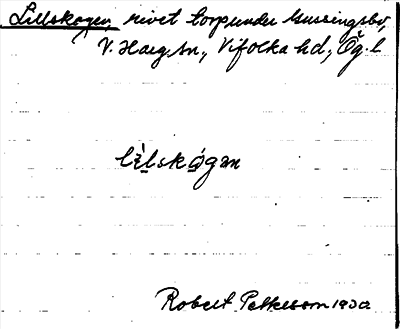 Lillskogen, rivet torp under Mussingsbo,
V. Harg sn, Vifolka hd, Ög. l
lìlskó̱gən
Robert Pettersson 1930